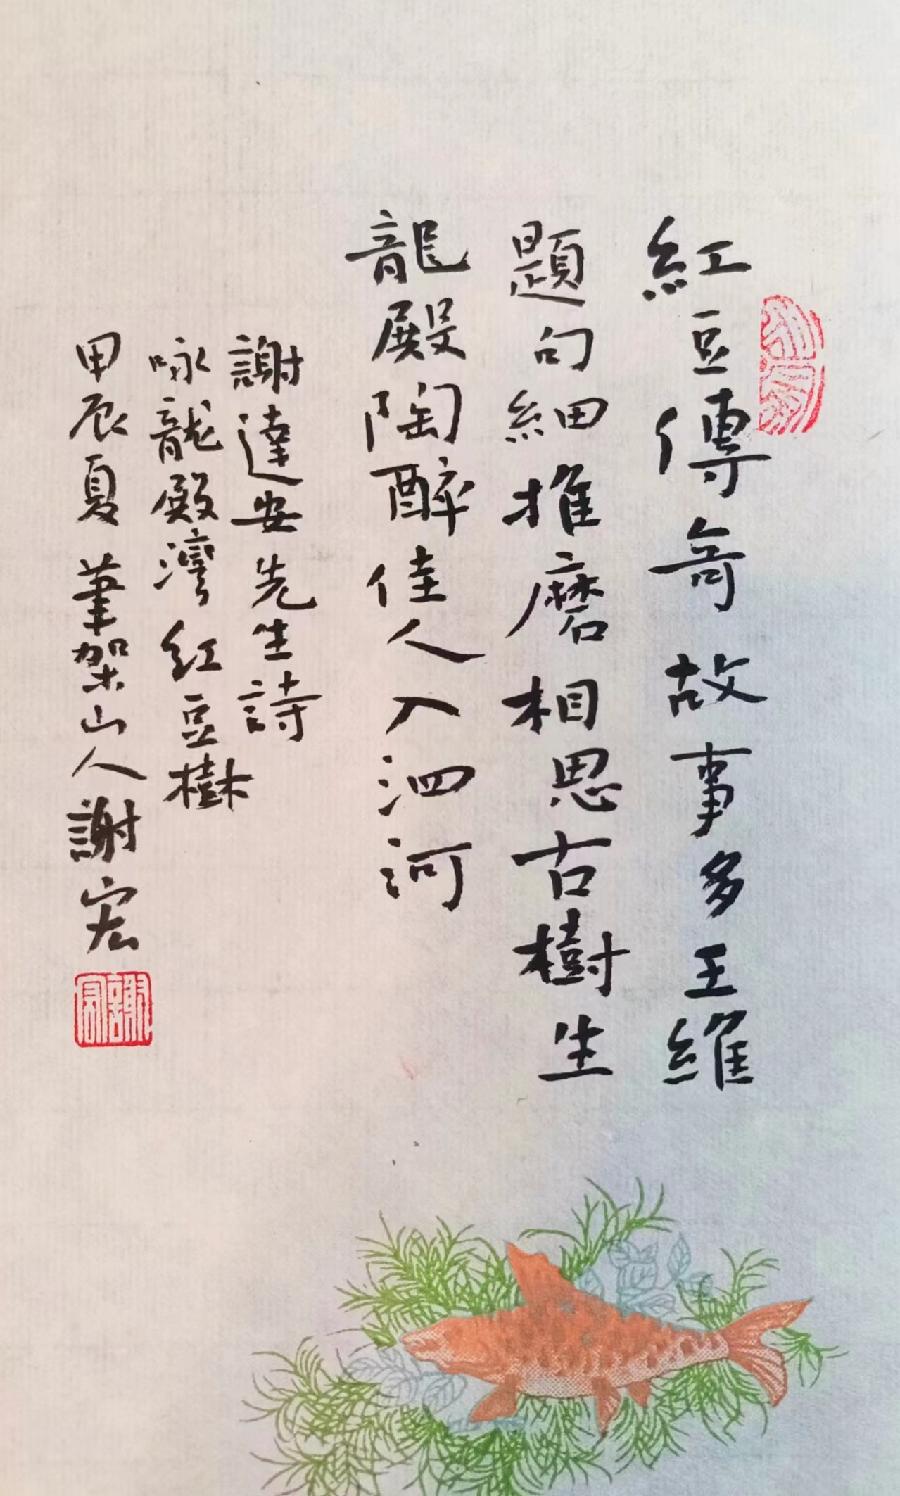 紅豆傳奇故事多王維
題句細推磨相思古樹生
龍殿陶醉佳人入泗河
謝達安先生詩
咏龍殿灣紅豆樹
甲辰夏筆架山人謝宏